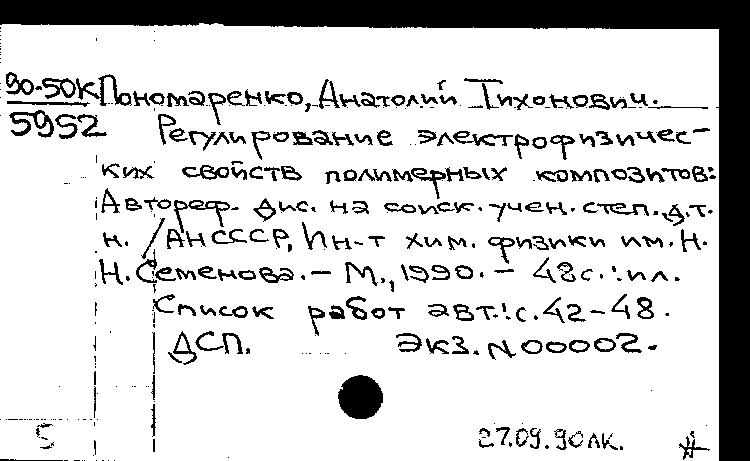 90-50К Пономаренко, Анатолий Тихонович.
5952 Регулирование электрофизичес-
ких свойств полимерных композитов:
Автореф. дис. на соиск. учен. степ. д.т.
н. / АН СССР, Ин-т хим. физики им. Н.
Н. Семенова. – М., 1990. – 48с. : ил.
Список работ авт.: с. 42–48.
ДСП. Экз. N 00002.
5 27.09.90 ЛК. #